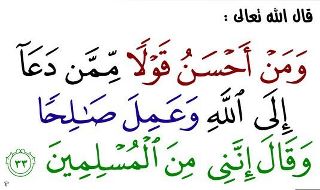 قال الله تعالى :
وَمَنْ أَحْسَنُ قَوْلًا مِّمَّن دَعَآ
إِلَى ٱللَّهِ وَعَمِلَ صَٰلِحًا
وَقَالَ إِنَّنِى مِنَ ٱلْمُسْلِمِينَ ٣٣